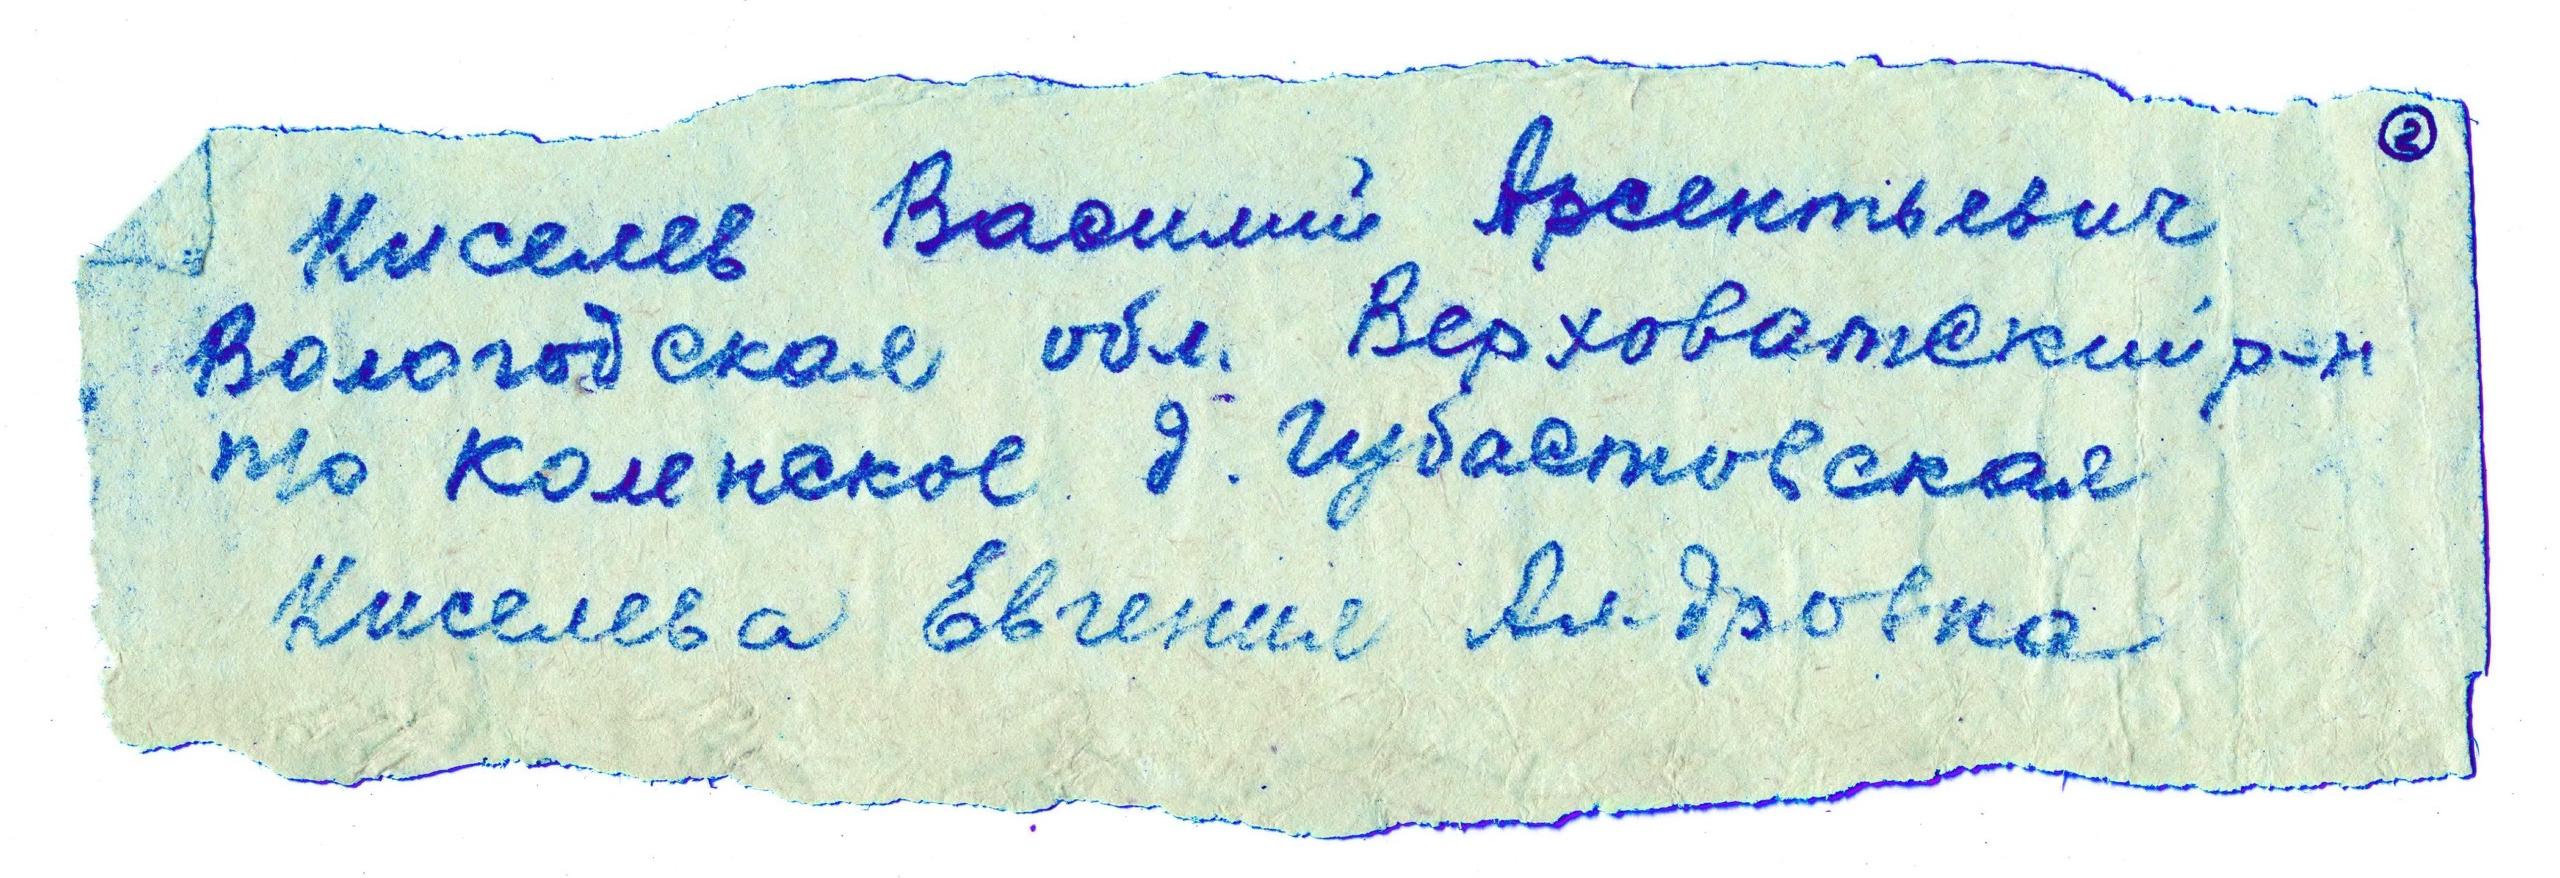 ②
Киселев Василий Арсентьевич
Вологодская обл. Верховатский р-н
п/о Коленское д. Губастовская
Киселева Евгения Ал-дровна